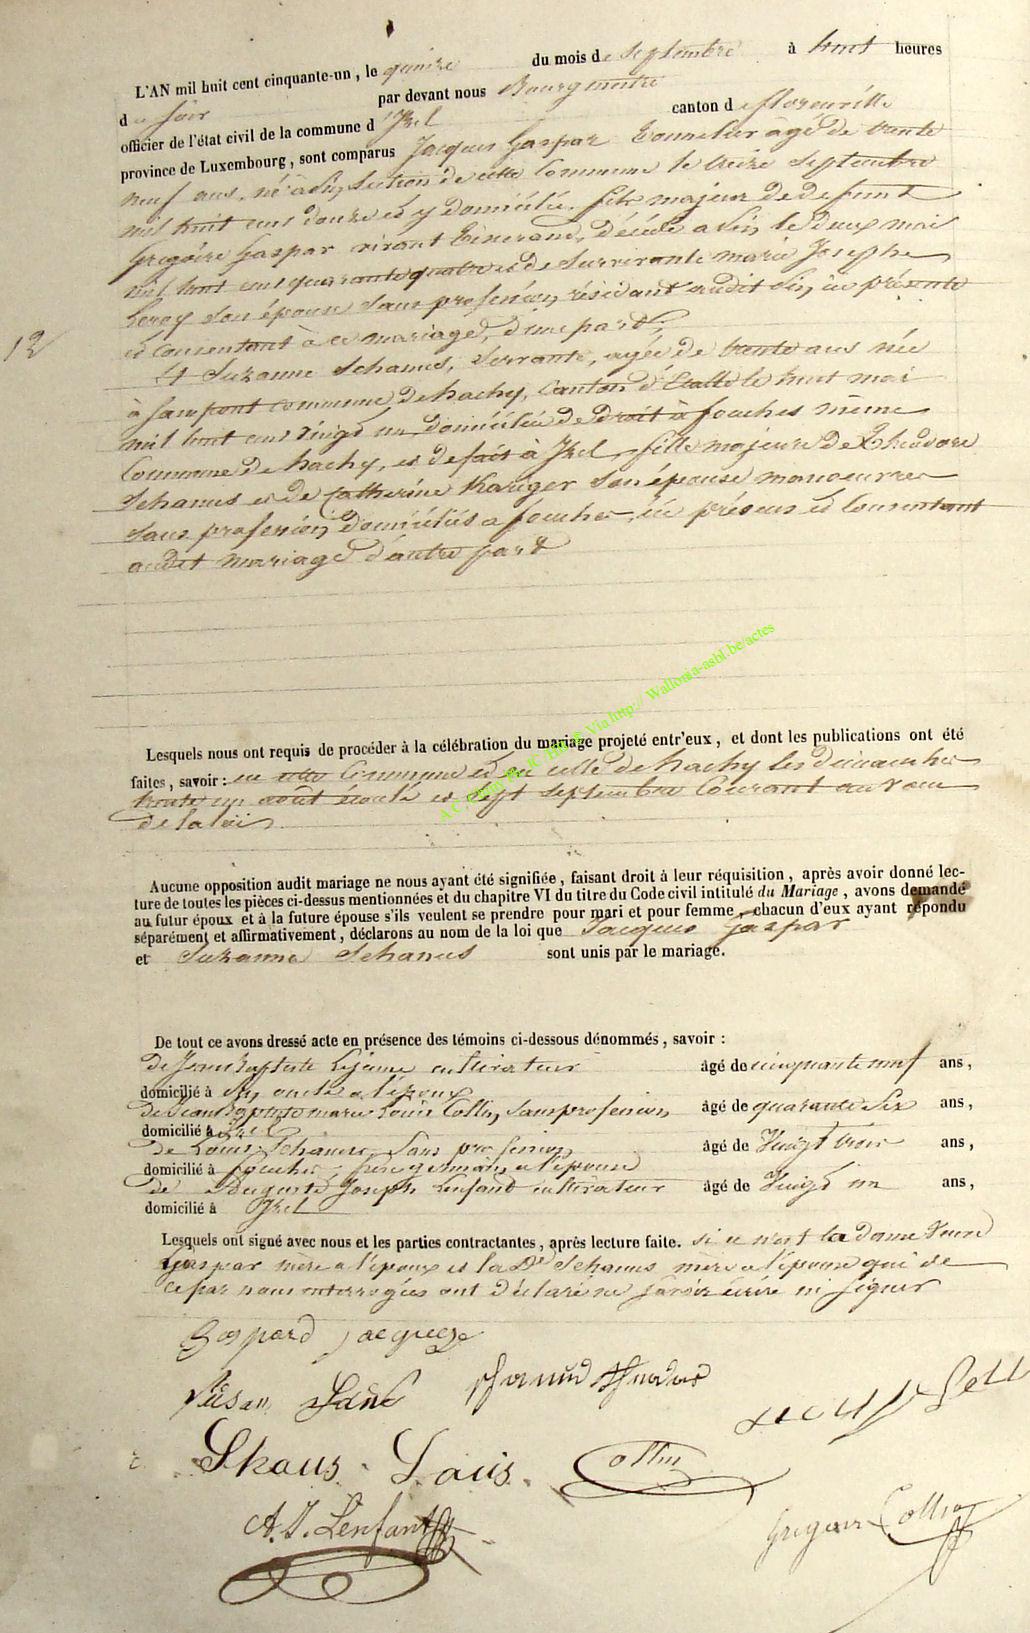 L'AN mil huit cent cinquante-un, le quinze du mois de Septembre à huit heures
du soir par devant nous Bourgmestre
officier de l'état civil de la commune d'Izel canton de florenville
province de Luxembourg, sont comparus Jacques Gaspar Tonnelier âgé de trente
neuf ans, né à Fin, section de cette Commune le treize Septembre
mil huit cent douze et y domicilié, fils majeur de defunt
Grégoire Gaspar vivant Tisserand, décédé a Fin le deux mai
mil huit cent quarante quatre et de Survivante marie Josephe
Leroy son épouse Sans profession, résidant audit Fin, ici présente
et Consentant à ce mariage, d'une part;
Et Suzanne Schanus, Servante, agée de trente ans née
à Sampont commune de hachy, Canton d'Etalle le huit mai
mil huit cent vingt un domiciliée de droit à fouches même
Commune de hachy, et de fait à Izel fille majeure de Théodore
Schanus et de Catherine Kauger Son épouse manoeuvres
Sans profession, domiciliés a fouches, ici présens et Consentant
audit mariage d'autre part
12
Lesquels nous ont requis de procéder à la célébration du mariage projeté entr'eux, et dont les publications ont été
faites, savoir: en cette Commune et en celle de hachy les dimanches
trente un août écoulé et Sept Septembre Courant au voeu
de la loi
Aucune opposition audit mariage ne nous ayant été signifiée, faisant droit à leur réquisition, après avoir donné lec-
ture de toutes les pièces ci-dessus mentionnées et du chapitre VI du titre du Code civil intitulé du Mariage, avons demandé
au futur époux et à la future épouse s'ils veulent se prendre pour mari et pour femme, chacun d'eux ayant répondu
séparément et affirmativement, déclarons au nom de la loi que Jacques Gaspar
et Suzanne Schanus sont unis par le mariage.
De tout ce avons dressé acte en présence des témoins ci-dessous dénommés, savoir:
de Jean Baptiste Lejeune cultivateur âgé de cinquante neuf ans,
domicilié à Fin, oncle a l'époux
de Jean Baptiste marie Louis Collin, Sans profession, âgé de quarante Six ans,
domicilié à Izel
de Louis Schanus Sans profession, âgé de Vingt trois ans,
domicilié à fouches, frère germain, a l'épouse
de Auguste Joseph Lenfant cultivateur âgé de Vingt un ans,
domicilié à Izel
Lesquels ont signé avec nous et les parties contractantes, après lecture faite. Si ce n'est la dame veuve
Gaspar mère a l'époux et la De Schanus mère a l'épouse qui de
ce par nous interrogées ont déclaré ne Savoir écrire ni Signer
Gaspard Jacques
Skaus Louis Collin
A. J. Lenfant Gregoire Collin
A.C. Via http:// Wallonia-asbl.be/actes